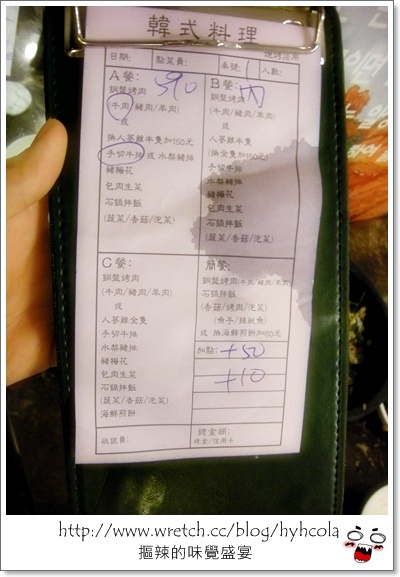 韓式料理
日期: 點菜員: 桌號: 1 人數:
A 餐: 590
銅盤烤肉
(牛肉/豬肉/羊肉)
或
換人蔘雞半隻加150元
手切牛排 或 水梨豬排
豬梅花
包肉生菜
石鍋拌飯
(蔬菜/香菇/泡菜)
B 餐:
銅盤烤肉
(牛肉/豬肉/羊肉)
或
人蔘雞半隻
手切牛排
水梨豬排
豬梅花
包肉生菜
石鍋拌飯
(蔬菜/香菇/泡菜)
C 餐:
銅盤烤肉
(牛肉/豬肉/羊肉)
或
人蔘雞全隻
手切牛排
水梨豬排
豬梅花
包肉生菜
石鍋拌飯
(蔬菜/香菇/泡菜)
海鮮煎餅
簡餐:
銅盤烤肉(牛肉/豬肉/羊肉)
石鍋拌飯
(香菇/烤肉/泡菜)
(魚子/辣魷魚)
或 換海鮮煎餅加50元
加點: +50
+10
收銀員:
總金額:
現金/信用卡
http://www.wretch.cc/blog/hyhcola
摳辣的味覺盛宴